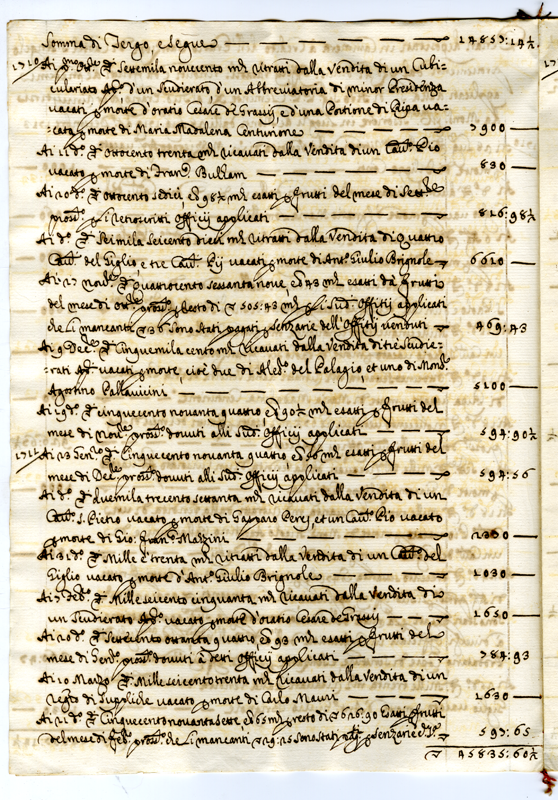 Somma di Tergo, e segue 14853:14½
1710 Ai d.º ▽ Settemila novecento mta ritratti dalla Vendita di un Cubi=
culariato Ap.º d'un Scudierato d'un Abbreviatoria di minor Presidenza
vacati p morte d'oratio Cesare de Grassi, e d'una Portione di Ripa va=
=cata p morte di Maria Madalena Centurione 7900
Ai 11 d.º ▽ Ottocento trenta mta ricavati dalla Vendita di un Cau.º Pio
vacato p morte di Fran.º Bullam 830
Ai 20 d.º ▽ ottocento sedici e 98½ mta esatti p frutti del mese di Sett.re
pros.º p li retroscritti offitij applicati 816:98½
Ai d.º ▽ Seimila seicento dieci mta ritratti dalla Vendita di quattro
Cau.ti del Giglio e tre Cau.ti Pij vacati p morte di Ant.º Giulio Brignole 6610
Ai 17 Nov.e ▽ quattrocento sessanta nove e 43 mta esatti da frutti
del mese di Ott.re pros.º p resto di ▽ 505:43 mta p li Sud.i Offitij applicati
che li mancanti ▽ 36 sono stati pagati p senzarie dell'Offitij venduti 469:43
Ai 9 Dec.e ▽ Cinquemila cento mta ricavati dalla Vendita di tre Scudie=
=rati Ap.ci vacati p morte, cioè due di Aled.º del Palagio et uno di Mons.r
Agostino Pallavicini 5100
Ai 19 d.º ▽ cinquecento novanta quattro e 90½ mta esatti p frutti del
mese di Nov.re pros.º dovuti alli Sud.i Offitij applicati 594:90½
1711 Ai 23 Gen.º ▽ Cinquecento novanta quattro e 56 mta esatti p frutti del
mese di Dec.re pros.º dovuti alli Sud.i Offitij applicati 594:56
Ai d.º ▽ Duemila trecento settanta mta ricavati dalla Vendita di un
Cau.º S. Pietro vacato p morte di Gasparo Perez, et un Cau.º Pio vacato
p morte di Gio: Fran.º Mazzini
Ai 31 d.º ▽ Mille e trenta mta ritratti dalla Vendita di un Cau.º del
Giglio vacato p morte d'Ant.º Giulio Brignole 1030
Ai Feb.º ▽ Mille seicento cinquanta mta ricavati dalla Vendita di
un Scudierato Ap.º vacato p morte d'oratio Cesare de Grassi 1650
Ai 20 d.º ▽ Settecento ottanta quattro e 93 mta esatti p frutti del
mese di Gen.º pros.º dovuti a detti Offitij applicati 784:93
Ai 10 Marzo ▽ Mille seicento trenta mta ricavati dalla Vendita di un
Reg.to di Supliche vacato p morte di Carlo Mauri 1630
Ai 21 d.º ▽ Cinquecento novanta sette e 65 mta p resto di ▽ 626:90 esatti p frutti
del mese di Feb.º pros.º che li mancanti ▽ 29:25 sono stati p senzarie 597:65
▽ 45835:60½